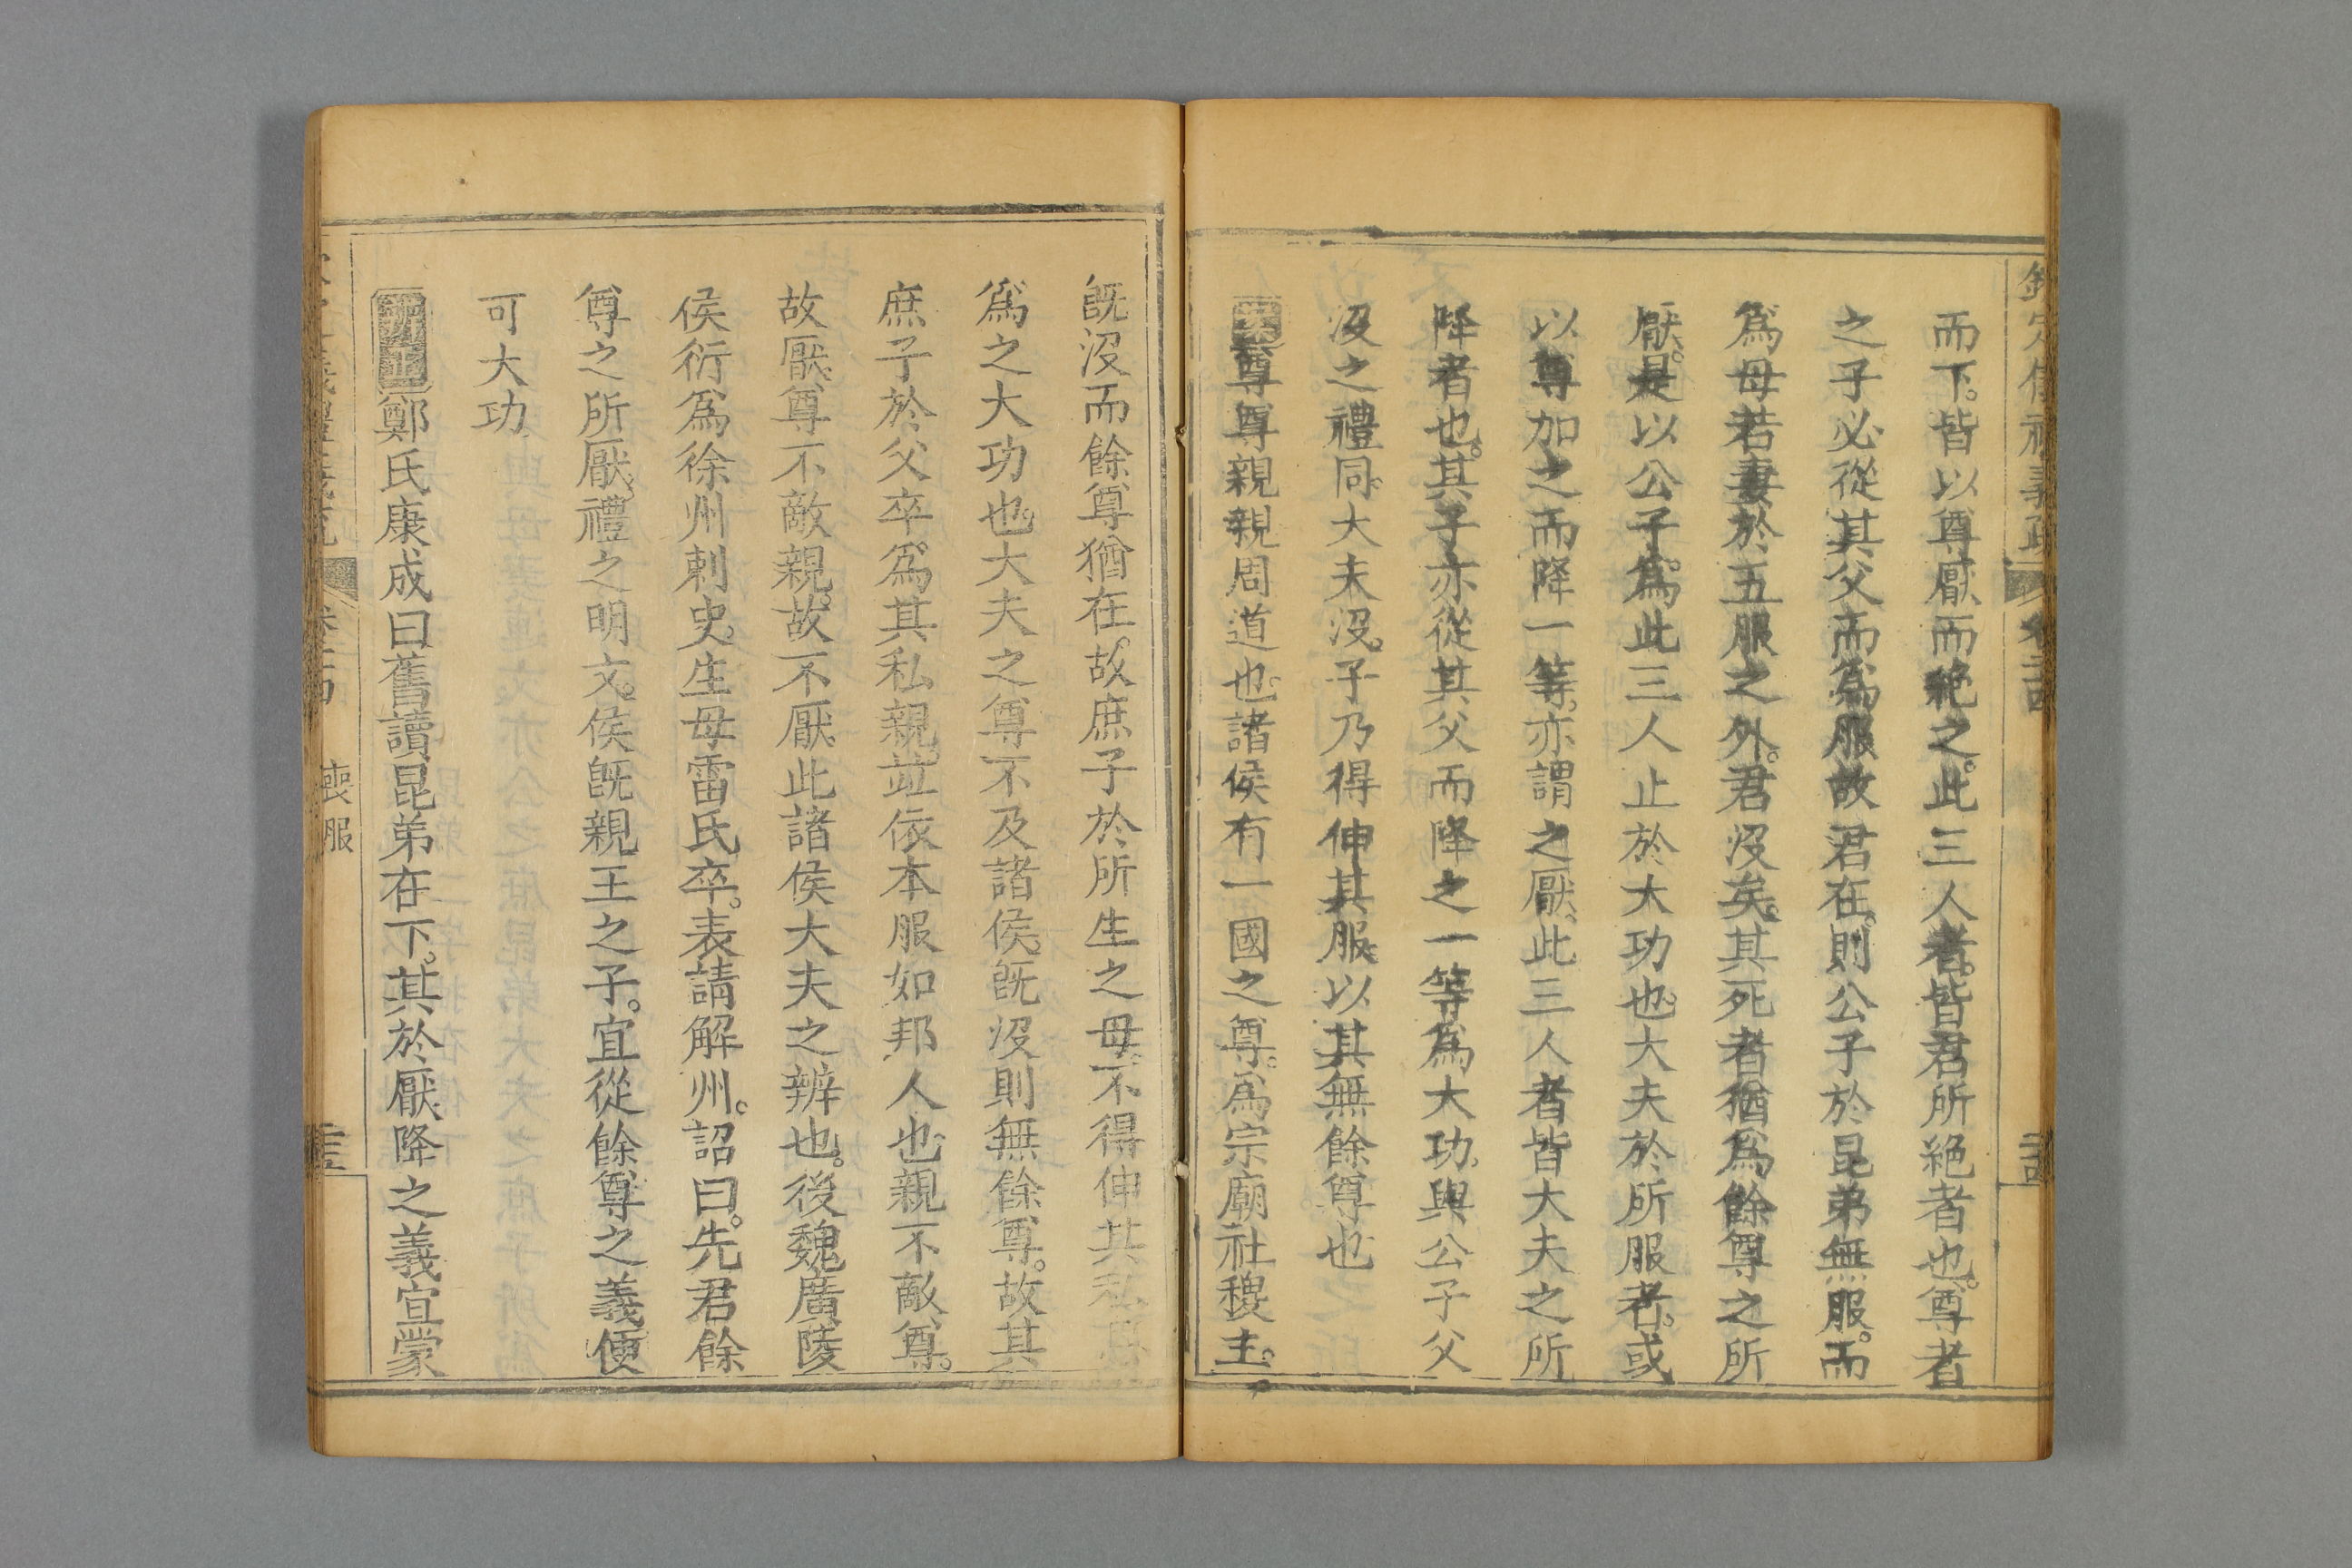 而下。皆以尊厭而絶之。此三人者。皆君所絶者也。尊者
之子必從其父而爲服故君在。則公子於昆弟無服。而
爲母若妻於五服之外。君没矣。其死者猶爲餘尊之所
厭。是以公子爲此三人止於大功也。大夫於所服者。或
以尊加之而降一等。亦謂之厭。此三人者皆大夫之所
降者也。其子亦從其父而降之一等爲大功。與公子父
没之禮同。大夫没。子乃得伸其服。以其無餘尊也
尊尊親親周道也。諸侯有一國之尊。爲宗廟社稷主。
既没而餘尊猶在。故庶子於所生之母。不得伸其私恩
爲之大功也。大夫之尊不及諸侯。既没則無餘尊。故其
庶子於父卒。爲其私親。竝依本服如邦人也。親不敵尊。
故厭。尊不敵親。故不厭此諸侯大夫之辨也。後魏廣陵
侯衍爲徐州刺史。生母雷氏卒。表請解州。詔曰。先君餘
尊之所厭。禮之明文。侯既親王之子。宜從餘尊之義便
可大功
鄭氏康成曰舊讀昆弟在下。其於厭降之義宣蒙
喪服